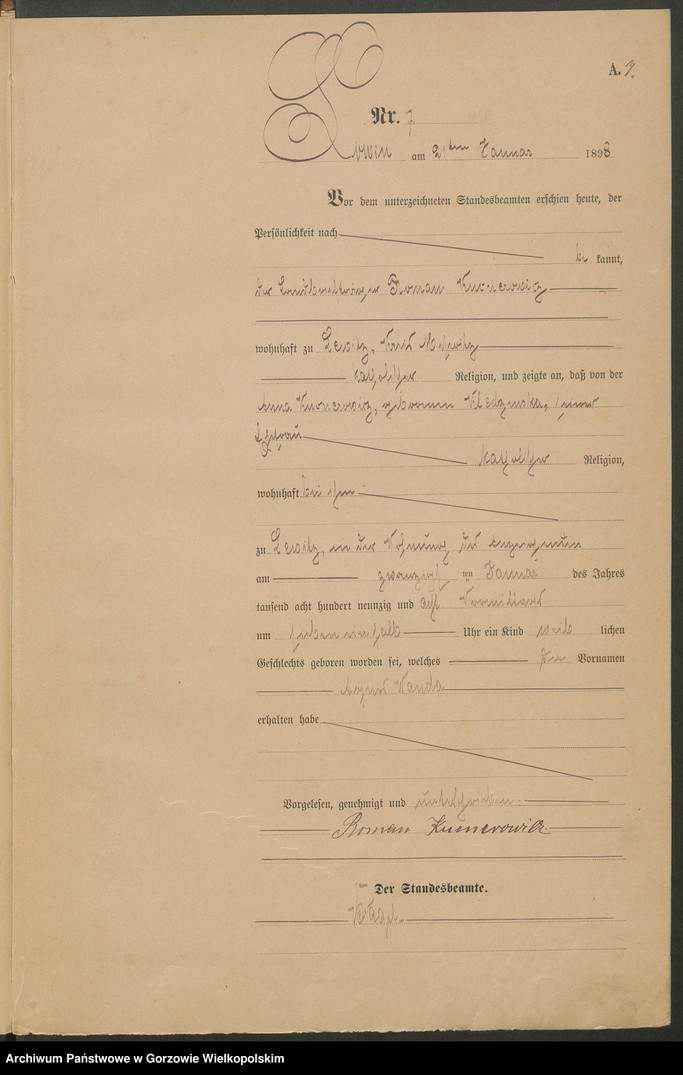 A. 7.
Nr. 7
am 21ten Januar 1898
Vor dem unterzeichneten Standesbeamten erschien heute, der
Persönlichkeit nach
be kannt,
der Landbriefträger Roman
wohnhaft zu Lewitz, Kreis Meseritz
katholischer Religion, und zeigte an, daß von der
Anna geborenen seiner
Ehefrau
katholischer Religion,
wohnhaft bei ihm
zu Lewitz, in der Wohnung des Anzeigenden
am zwanzigsten Januar des Jahres
tausend acht hundert neunzig und acht Vormittags
um sieben einhalb Uhr ein Kind weib lichen
Geschlechts geboren worden sei, welches die Vornamen
Agnes Wanda
erhalten habe
Vorgelesen, genehmigt und unterschrieben.
Roman
Der Standesbeamte.
Archiwum Państwowe w Gorzowie Wielkopolskim